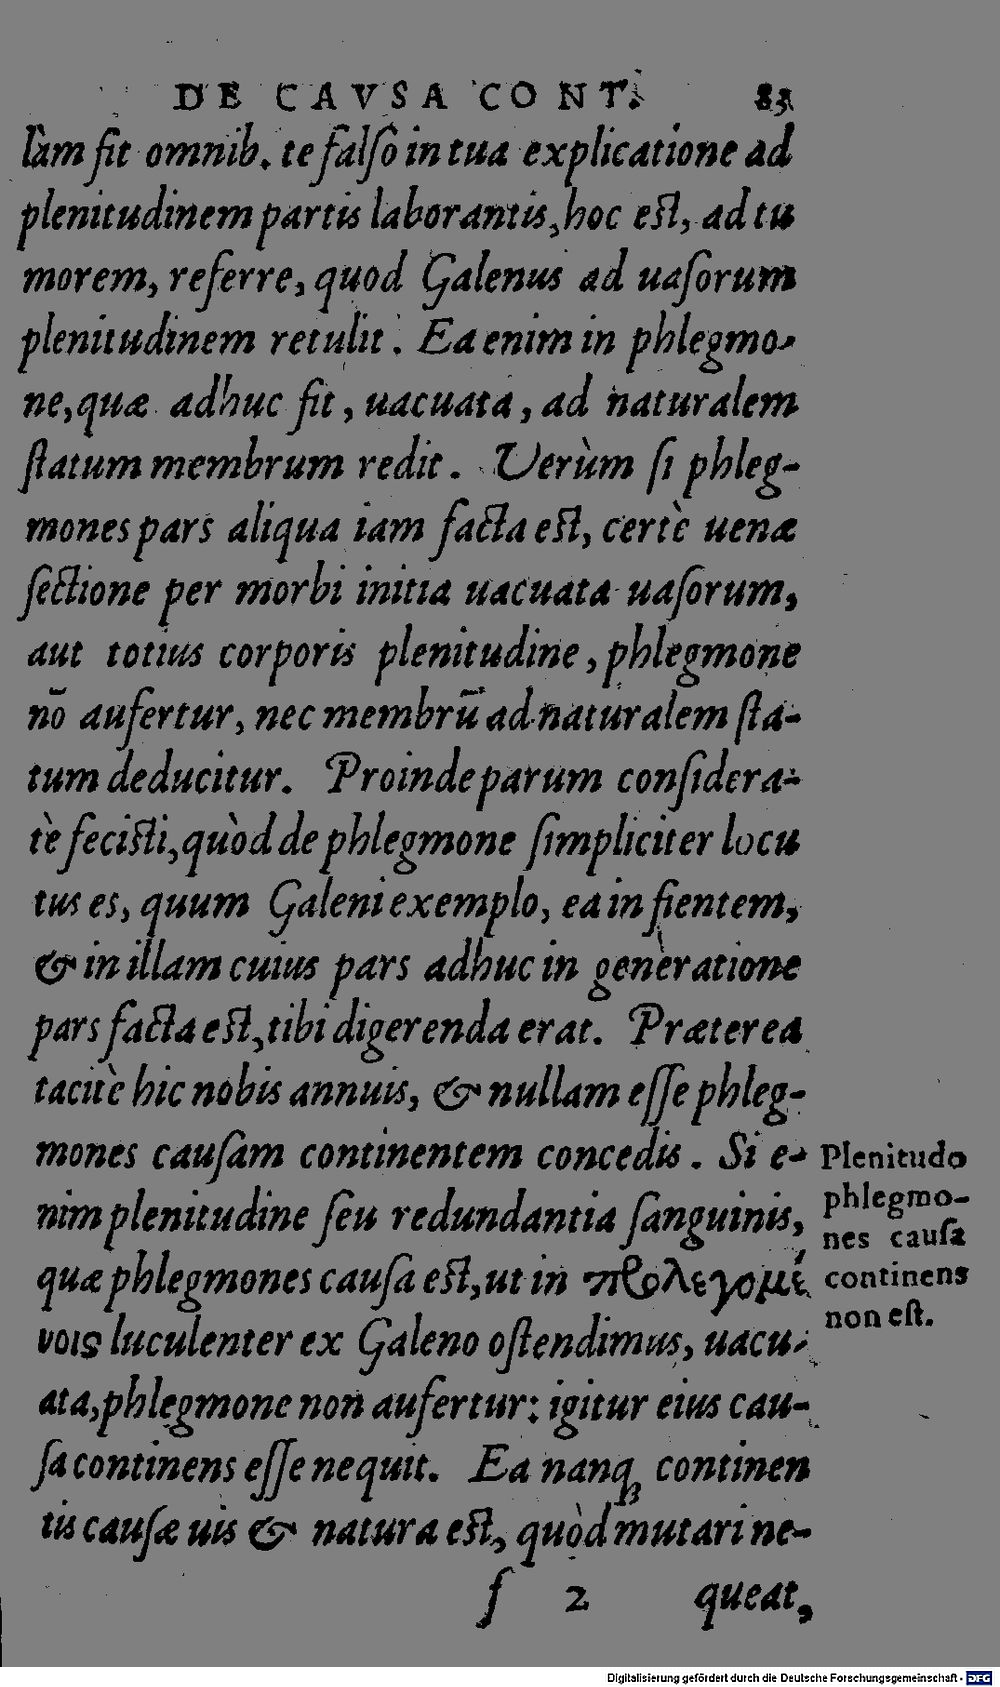 DE CAVSA CONT. 83
làm fit omnib. te falſò in tua explicatione ad
plenitudinem partis laborantis, hoc eſt, ad tu
morem, referre, quod Galenus ad uaſorum
plenitudinem retulit. Ea enim in phlegmo-
ne, quæ adhuc fit, uacuata, ad naturalem
ſtatum membrum redit. Verùm ſi phleg-
mones pars aliqua iam facta eſt, certè uenæ
ſectione per morbi initia uacuata uaſorum,
aut totius corporis plenitudine, phlegmone
nõ aufertur, nec membrũ ad naturalem ſta-
tum deducitur. Proinde parum conſidera-
tè feciſti, quòd de phlegmone ſimpliciter locu
tus es, quum Galeni exemplo, ea in fientem,
& in illam cuius pars adhuc in generatione
pars facta eſt, tibi digerenda erat. Præterea
tacitè hic nobis annuis, & nullam eſſe phleg-
mones cauſam continentem concedis. Si e-
nim plenitudine ſeu redundantia ſanguinis,
quæ phlegmones cauſa eſt, ut in προλεγομέ
νοις luculenter ex Galeno oſtendimus, uacu-
ata, phlegmone non aufertur: igitur eius cau-
ſa continens eſſe nequit. Ea nanq; continen
tis cauſæ uis & natura eſt, quòd mutari ne-
f 2 queat,
Plenitudo
phlegmo-
nes cauſa
continens
non eſt.
Digitalisierung gefördert durch die Deutsche Forschungsgemeinschaft - DFG